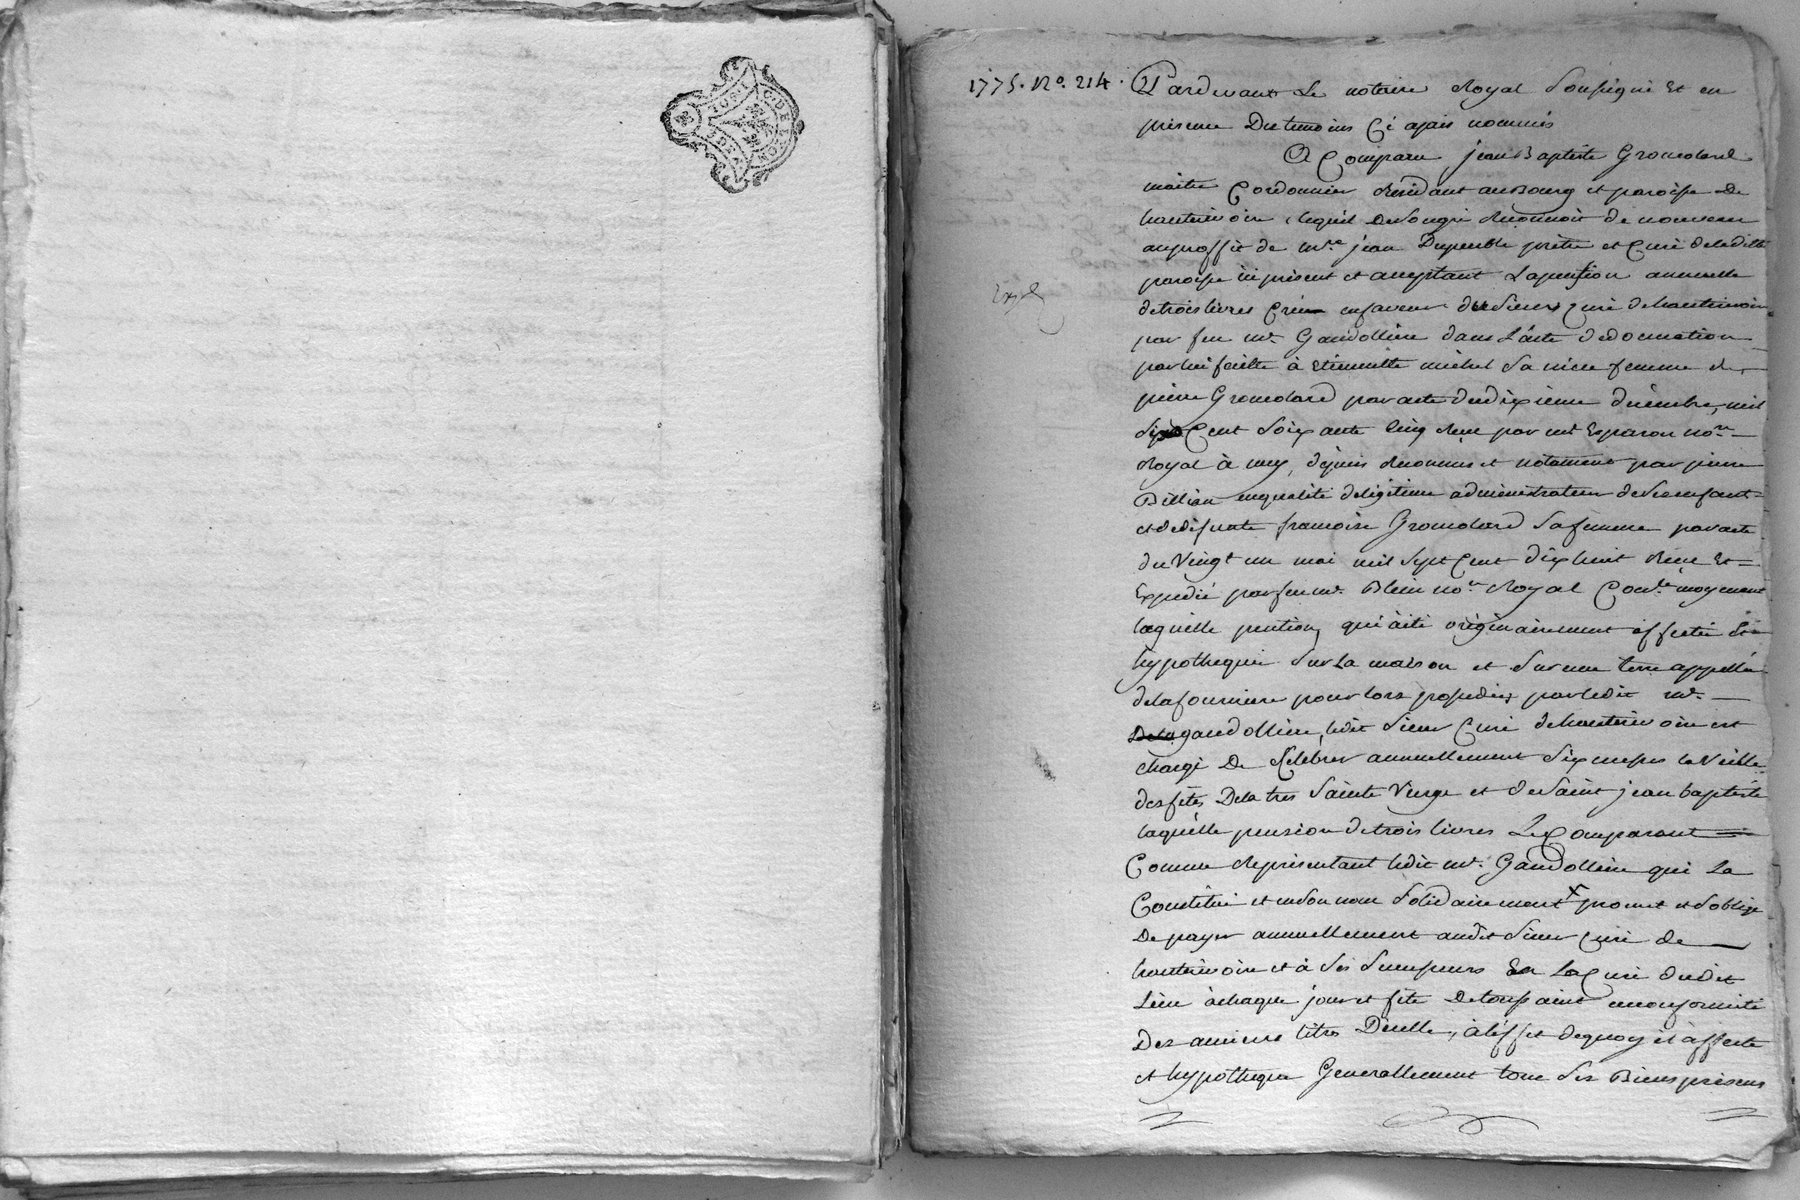 1775. No. 214.
Pardevant Le notaire Royal Soussigné Et en
présence Des temoins Ci apais nommés
A Comparu jean Baptiste Gromolard
maitre Cordonnier Residant au Bourg et paroisse De
hauterivoire, lequel De son gré Reconnoit de nouveau
au proffit de mre jean Dupeuble prêtre et Curé de ladite
paroisse ici présent et acceptant La pention annuelle
de trois livres Créée en faveur du Sieur Curé de hauterivoire
par feu mr. Gaudolliere dans L'acte de donnation
par lui faitte à Etiennette michel Sa niece femme de
pierre Gromolard par acte du dixieme décembre, mil
Six Cent Soixante Cinq Reçu par me Esparon nore
Royal à mey, depuis Reconnue et notament par pierre
Billian en qualité de légitime administrateur de Ses enfants
et de défunte francoise Gromolard Sa femme par acte
du Vingt un mai mil Sept Cent dix huit Reçu Et
Expedié par feu me. Blein nore Royal moyenant
laquelle pention, qui a été originairement affectée Et
hypothequée Sur La maison et Sur une terre appellée
de la fourniere pour lors possedées par ledit mr.
gaudolliere, ledit Sieur Curé de hauterivoire est
chargé De Célébrer annuellement Six messes la Veille
des fêtes De la tres Sainte Vierge et de Saint jean baptiste
laquelle pension de trois livres Le Comparant
Comme Représentant ledit mr. Gaudolliere qui La
Constitué et en Son nom Solidairement promet et S'oblige
De payer annuellement audit Sieur Curé de
hauterivoire et à Ses Successeurs En La Cure dudit
Lieu à chaque jour et fête De toussaint en conformité
Des anciens titres D'icelle, à l'effet de quoy il affecte
et hypotheque Generallement tous Ses Biens présens